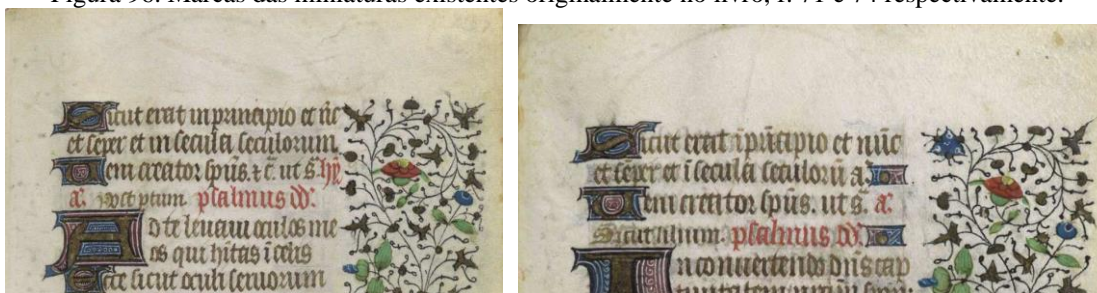 Figura 98. Marcas das miniaturas existentes originalmente no livro, f. 71 e 74 respectivamente.
Sicut erat in principio et nc
et seper et in secula seculorum.
Veni creator spus. & c. ut s. hy
a. post ptum. psalmus dd.
Ad te levavi oculos me
os qui hitas i celis
Ecce sicut oculi servorum
Sicut erat i pricipio et nuc
et seper et i secula seculoru a
Veni creator spus. ut s. a.
Sicut lilium. psalmus dd.
In convertendo dns cap